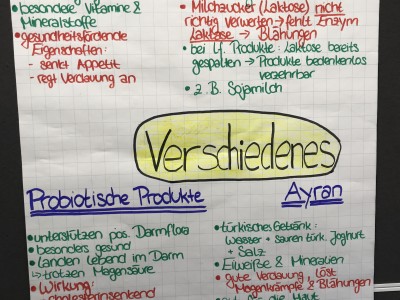 • besondere Vitamine &
Mineralstoffe
• gesundheitsfördernde
Eigenschaften:
- senkt Appetit
- regt Verdauung an
• Milchzucker (Laktose) nicht
richtig verwerten → fehlt Enzym
Laktase → Blähungen
• bei lf. Produkte: Laktose bereits
gespalten → Produkte bedenkenlos
verzehrbar
• z.B. Sojamilch
Verschiedenes
Probiotische Produkte
• unterstützen pos. Darmflora
• besonders gesund
• landen lebend im Darm
↳ trotzen Magensäure
• Wirkung:
- cholesterinsenkend
Ayran
• türkisches Getränk:
Wasser + säuren türk. Joghurt
+ Salz
• Eiweiße & Mineralien
• gute Verdauung, löst
Magenkrämpfe & Blähungen
die Haut